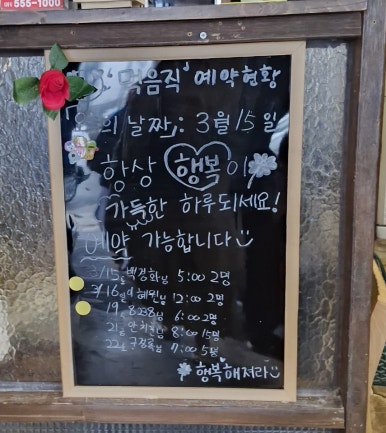 555-1000
먹음직' 예약현황
의 날짜,: 3월 15일
항상 행복이
가득한 하루되세요!
예약 가능합니다
3/15 백경화님 5:00 2명
3/16 혜원님 12:00 2명
19 8238님 6:00 2명
21 님 8:00 15명
22 님 7:00 5명
행복해져라